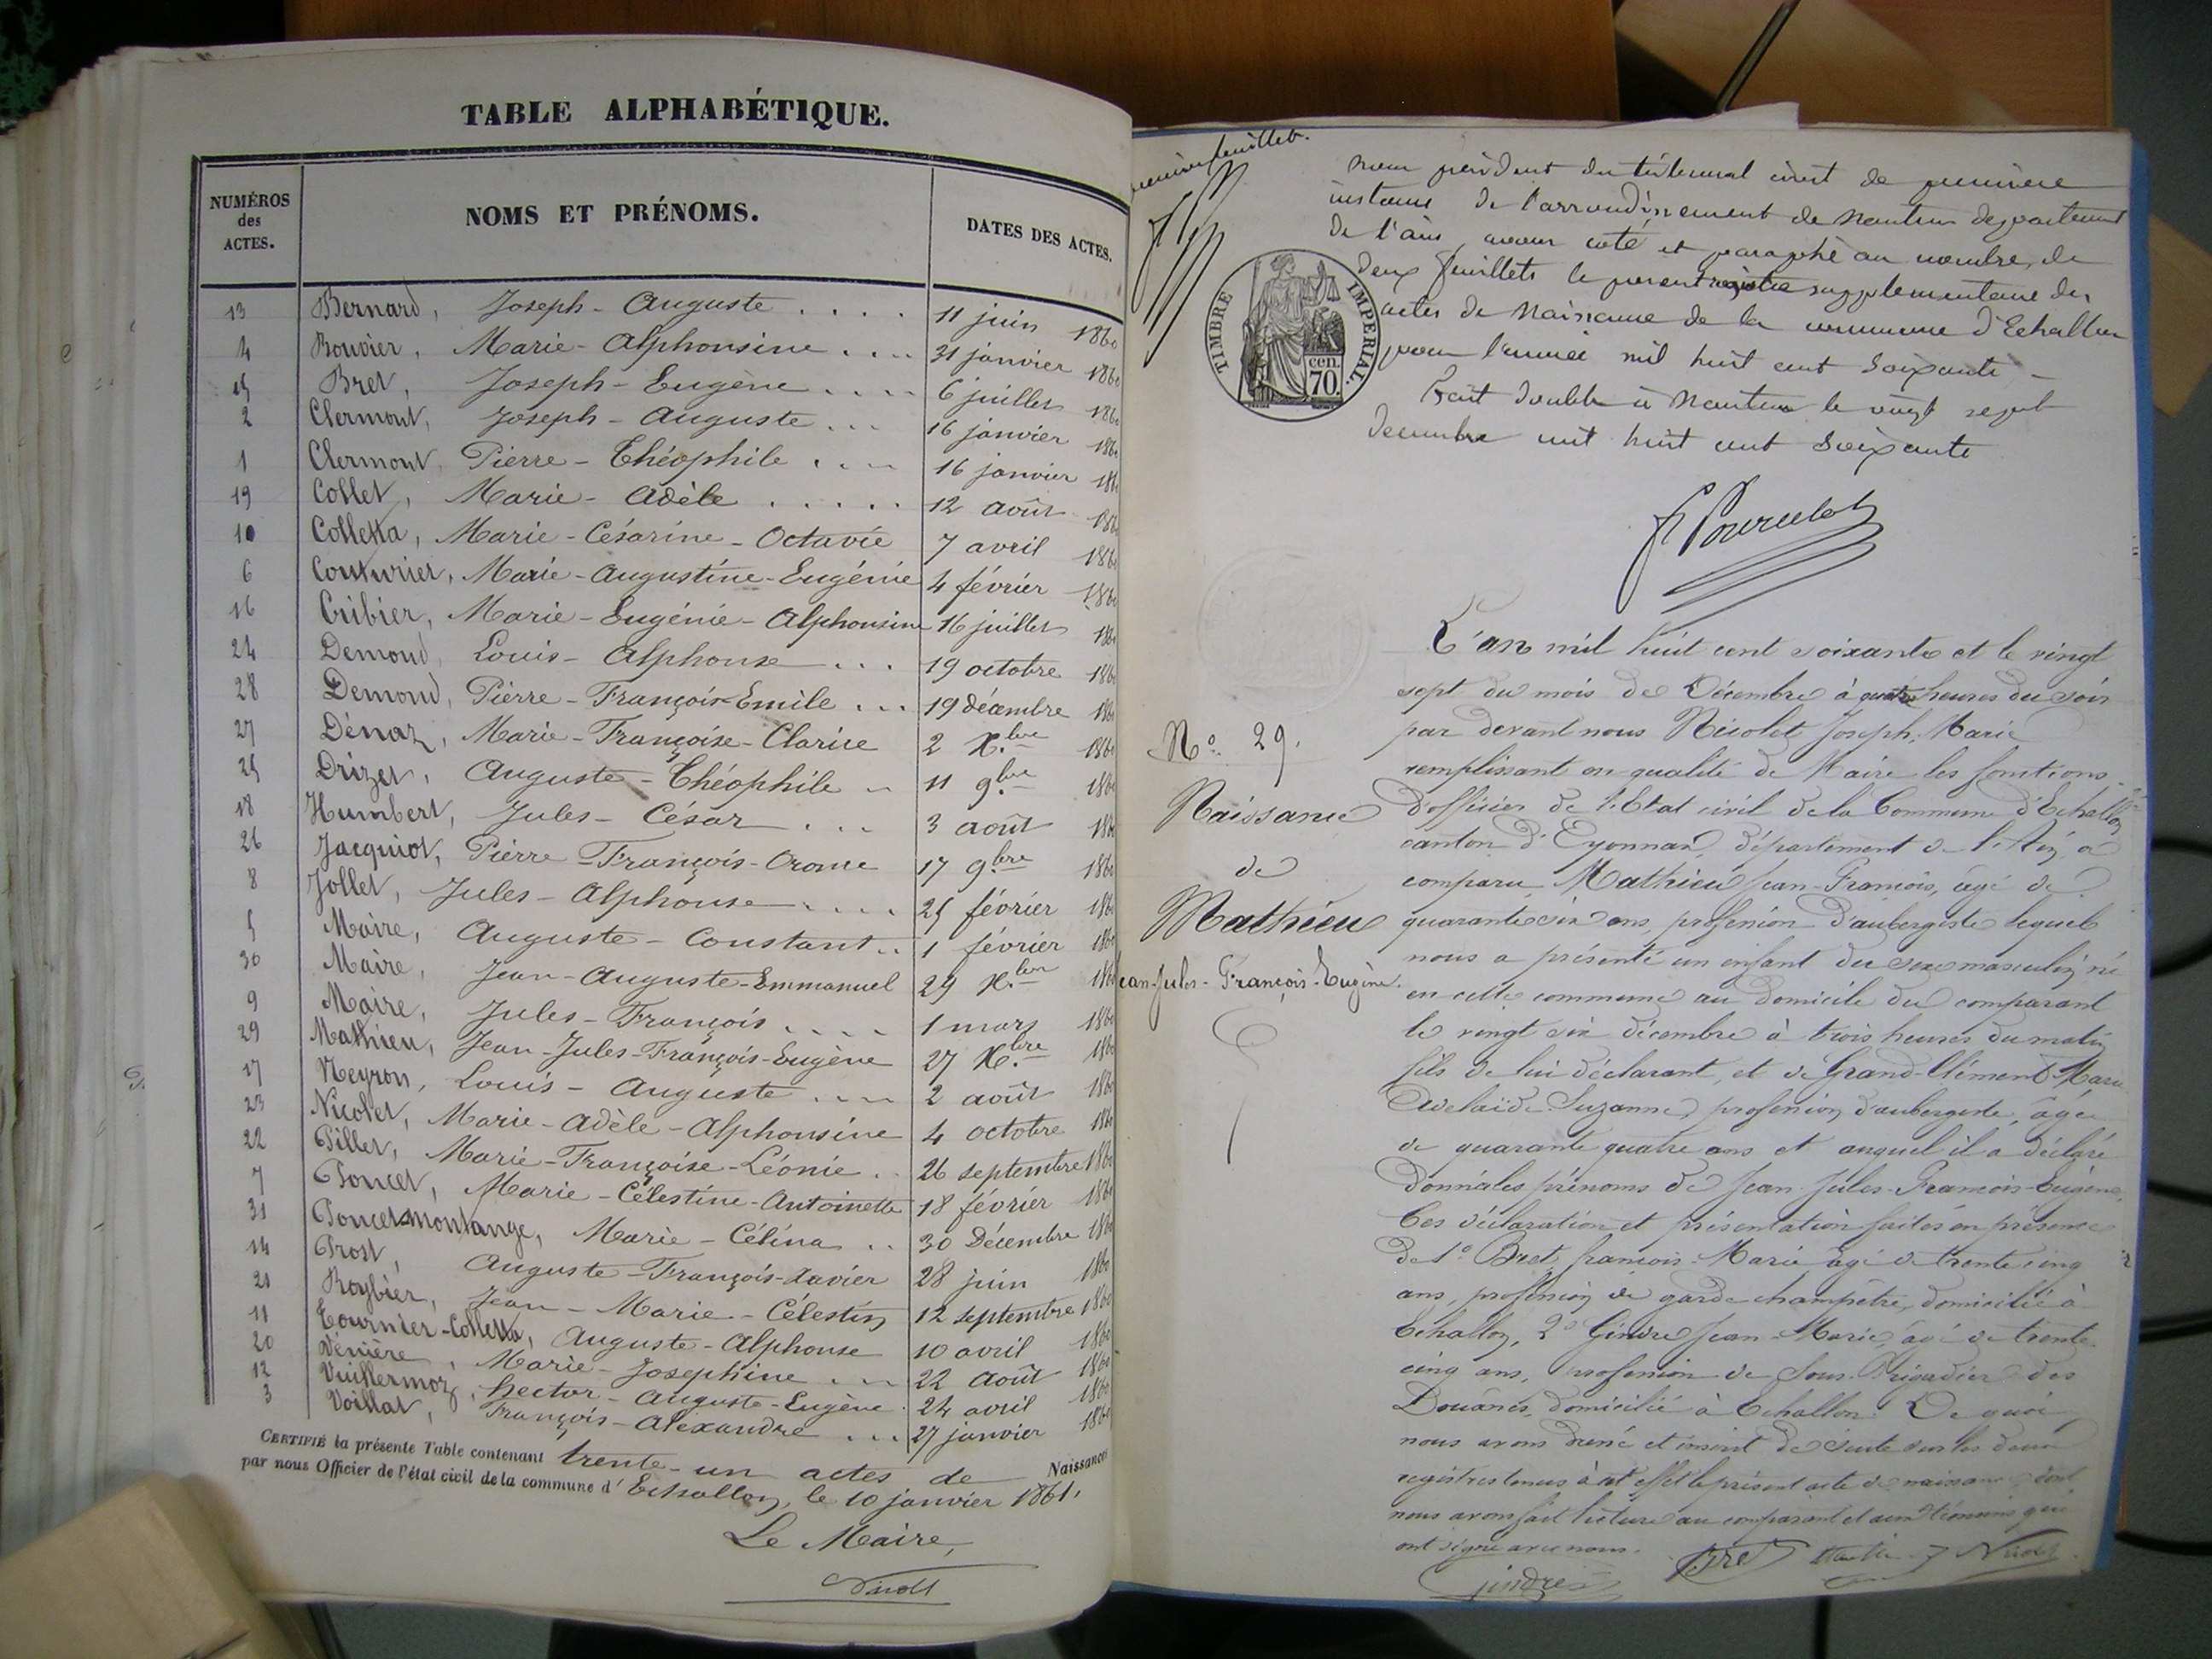 TABLE ALPHABÉTIQUE.
NUMÉROS des ACTES. NOMS ET PRÉNOMS. DATES DES ACTES.
13 Bernard, Joseph-Auguste .... 11 juin 1860
4 Bouvier, Marie-Alphonsine .... 31 janvier 1860
15 Bret, Joseph-Eugène .... 6 juillet 1860
2 Clermont, Joseph-Auguste ... 16 janvier 1860
1 Clermont, Pierre-Théophile .... 16 janvier 1860
19 Collet, Marie-Adèle ..... 12 août 1860
10 Colletta, Marie-Césarine-Octavie 7 avril 1860
6 Couturier, Marie-Augustine-Eugénie 4 février 1860
16 Cribier, Marie-Eugénie-Alphonsine 16 juillet 1860
24 Demond, Louis-Alphonse ... 19 octobre 1860
28 Demond, Pierre-François-Emile ... 19 décembre 1860
27 Dénaz, Marie-Françoise-Clarice 2 X.bre 1860
25 Drizet, Auguste-Théophile .. 11 9.bre 1860
18 Humbert, Jules-César ... 3 août 1860
26 Jacquiot, Pierre-François-Orome 17 9.bre 1860
8 Jollet, Jules-Alphonse .... 25 février 1860
5 Maire, Auguste-Constant .. 1 février 1860
30 Maire, Jean-Auguste-Emmanuel 29 X.bre 1860
9 Maire, Jules-François .... 1 mars 1860
29 Mathieu, Jean-Jules-François-Eugène 27 X.bre 1860
17 Neyron, Louis-Auguste .... 2 août 1860
23 Nicolet, Marie-Adèle-Alphonsine 4 octobre 1860
22 Pillet, Marie-Françoise-Léonie . 26 septembre 1860
7 Poncet, Marie-Célestine-Antoinette 18 février 1860
31 Poncet-montange, Marie-Célina .. 30 Décembre 1860
14 Prost, Auguste-François-Xavier 28 juin 1860
21 Roybier, Jean-Marie-Célestin 12 septembre 1860
11 Tournier-Colletta, Auguste-Alphonse 10 avril 1860
20 Vénière, Marie-Josephine ... 22 Août 1860
12 Vuillermoz, hector-Auguste-Eugène . 24 avril 1860
3 Voillat, François-Alexandre ... 27 janvier 1860
CERTIFIÉ la présente Table contenant trente-un actes de Naissances
par nous Officier de l'état civil de la commune d'Echallon, le 10 janvier 1861.
Le Maire,
Nicolet
feuillet.
Nous président du tribunal civil de première
instance de l'arrondissement de Nantua département
de l'ain, avons coté et paraphé au nombre de
deux feuillets le present registre supplementaire des
actes de Naissance de la commune d'Echallon
pour l'année mil huit cent soixante -
Fait double à Nantua le vingt sept
decembre mil huit cent soixante
TIMBRE IMPÉRIAL.
cen. 70.
L'an mil huit cent soixante et le vingt
sept du mois de Décembre à quatre heures du soir
par devant nous Nicolet Joseph-Marie
remplissant en qualité de Maire les fonctions
d'officier de l'Etat civil de la Commune d'Echallon
canton d'Oyonnax, département de l'Ain, a
comparu Mathieu Jean-François, âgé de
quarante six ans, profession d'aubergiste lequel
nous a présenté un enfant du sexe masculin, né
en cette commune au domicile du comparant
le vingt six décembre à trois heures du matin
fils de lui déclarant, et de Grand-Clément Marie
Adelaïde Suzanne, profession d'aubergiste, âgée
de quarante quatre ans et auquel il a déclaré
donner les prénoms de Jean Jules-François-Eugène.
Ces déclaration et présentation faites en présence
de 1° Bret françois-Marie âgé de trente cinq
ans, profession de garde champêtre, domicilié à
Echallon, 2° Gindre Jean-Marie, âgé de trente
cinq ans, profession de Sous-Brigadier des
Douanes, domicilié à Echallon. De quoi
nous avons dressé et inscrit de suite sur les deux
registres tenus à cet effet le présent acte de naissance dont
nous avons fait lecture au comparant et aux témoins qui
ont signé avec nous.
gindre Bret Nicolet
N° 29.
Naissance
de
Mathieu
Jean-Jules-François-Eugène.